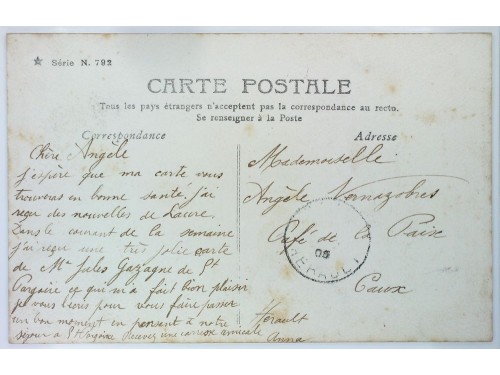 ★ Série N. 792
CARTE POSTALE
Tous les pays étrangers n'acceptent pas la correspondance au recto.
Se renseigner à la Poste
Correspondance
Chère Angèle
J'espère que ma carte vous
trouveras en bonne santé. j'ai
reçu des nouvelles de Laure
Dans le courant de la semaine
j'ai reçu une très jolie carte
de Mr Jules Gazagne de St
Pargoire ce qui m'a fait bon plaisir
je vous écris pour vous faire passer
un bon moment en pensant à notre
séjour à St Pargoire Recevez une caresse amicale
Anna
Adresse
Mademoiselle
Angèle Vernazobres
Café de la Paix
Caux
Hérault
05
HERAULT